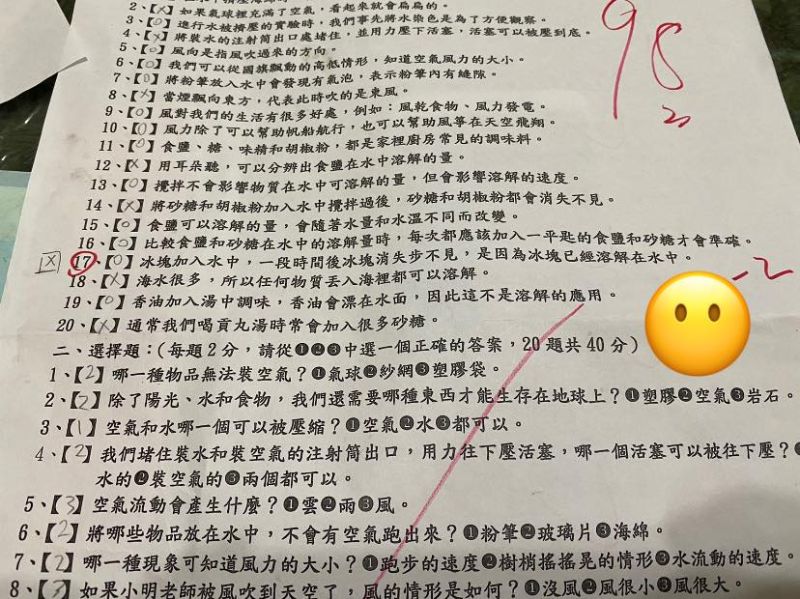 2、【X】如果氣球裡充滿了空氣，看起來就會扁扁的。
3、【O】進行水被擠壓的實驗時，我們事先將水染色是為了方便觀察。
4、【X】將裝水的注射筒出口處堵住，並用力壓下活塞，活塞可以被壓到底。
5、【O】風向是指風吹過來的方向。
6、【O】我們可以從國旗飄動的高低情形，知道空氣風力的大小。
7、【O】將粉筆放入水中會發現有氣泡，表示粉筆內有縫隙。
8、【X】當煙飄向東方，代表此時吹的是東風。
9、【O】風對我們的生活有很多好處，例如：風乾食物、風力發電。
10、【O】風力除了可以幫助帆船航行，也可以幫助風箏在天空飛翔。
11、【O】食鹽、糖、味精和胡椒粉，都是家裡廚房常見的調味料。
12、【X】用耳朵聽，可以分辨出食鹽在水中溶解的量。
13、【O】攪拌不會影響物質在水中可溶解的量，但會影響溶解的速度。
14、【X】將砂糖和胡椒粉加入水中攪拌過後，砂糖和胡椒粉都會消失不見。
15、【O】食鹽可以溶解的量，會隨著水量和水溫不同而改變。
16、【O】比較食鹽和砂糖在水中的溶解量時，每次都應該加入一平匙的食鹽和砂糖才會準確。
X 17、【O】冰塊加入水中，一段時間後冰塊消失步不見，是因為冰塊已經溶解在水中。
18、【X】海水很多，所以任何物質丟入海裡都可以溶解。
19、【O】香油加入湯中調味，香油會漂在水面，因此這不是溶解的應用。
20、【X】通常我們喝貢丸湯時常會加入很多砂糖。
二、選擇題：（每題2分，請從❶❷❸中選一個正確的答案，20題共40分）
1、【2】哪一種物品無法裝空氣？❶氣球❷紗網❸塑膠袋。
2、【2】除了陽光、水和食物，我們還需要哪種東西才能生存在地球上？❶塑膠❷空氣❸岩石。
3、【1】空氣和水哪一個可以被壓縮？❶空氣❷水❸都可以。
4、【2】我們堵住裝水和裝空氣的注射筒出口，用力往下壓活塞，哪一個活塞可以被往下壓？
水的❷裝空氣的❸兩個都可以。
5、【3】空氣流動會產生什麼？❶雲❷雨❸風。
6、【2】將哪些物品放在水中，不會有空氣跑出來？❶粉筆❷玻璃片❸海綿。
7、【2】哪一種現象可知道風力的大小？❶跑步的速度❷樹梢搖搖晃的情形❸水流動的速度。
8、【3】如果小明老師被風吹到天空了，風的情形是如何？❶沒風❷風很小❸風很大。
98
-2